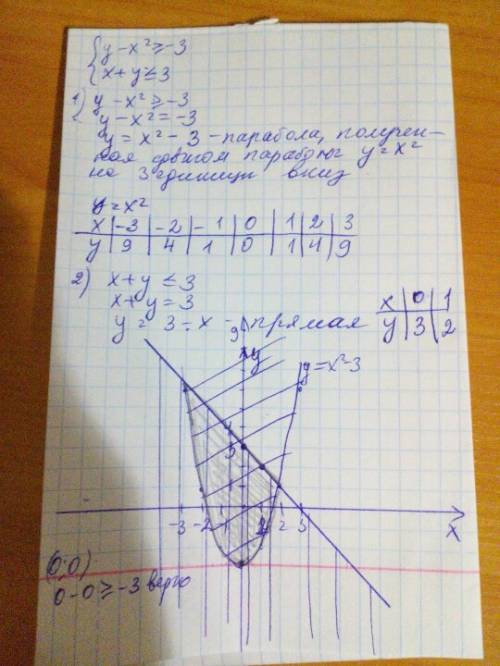 {y - x² ≥ -3
{x + y ≤ 3
1) y - x² ≥ -3
y - x² = -3
y = x² - 3 - парабола, получен-
ная сдвигом параболы y = x²
на 3 единицы вниз
y = x²
x | -3 | -2 | -1 | 0 | 1 | 2 | 3
y | 9 | 4 | 1 | 0 | 1 | 4 | 9
2) x + y ≤ 3
x + y = 3
y = 3 - x - прямая
x | 0 | 1
y | 3 | 2
9
y
y = x² - 3
3
-3 -2 1 2 3
x
(0;0)
0 - 0 ≥ -3 верно